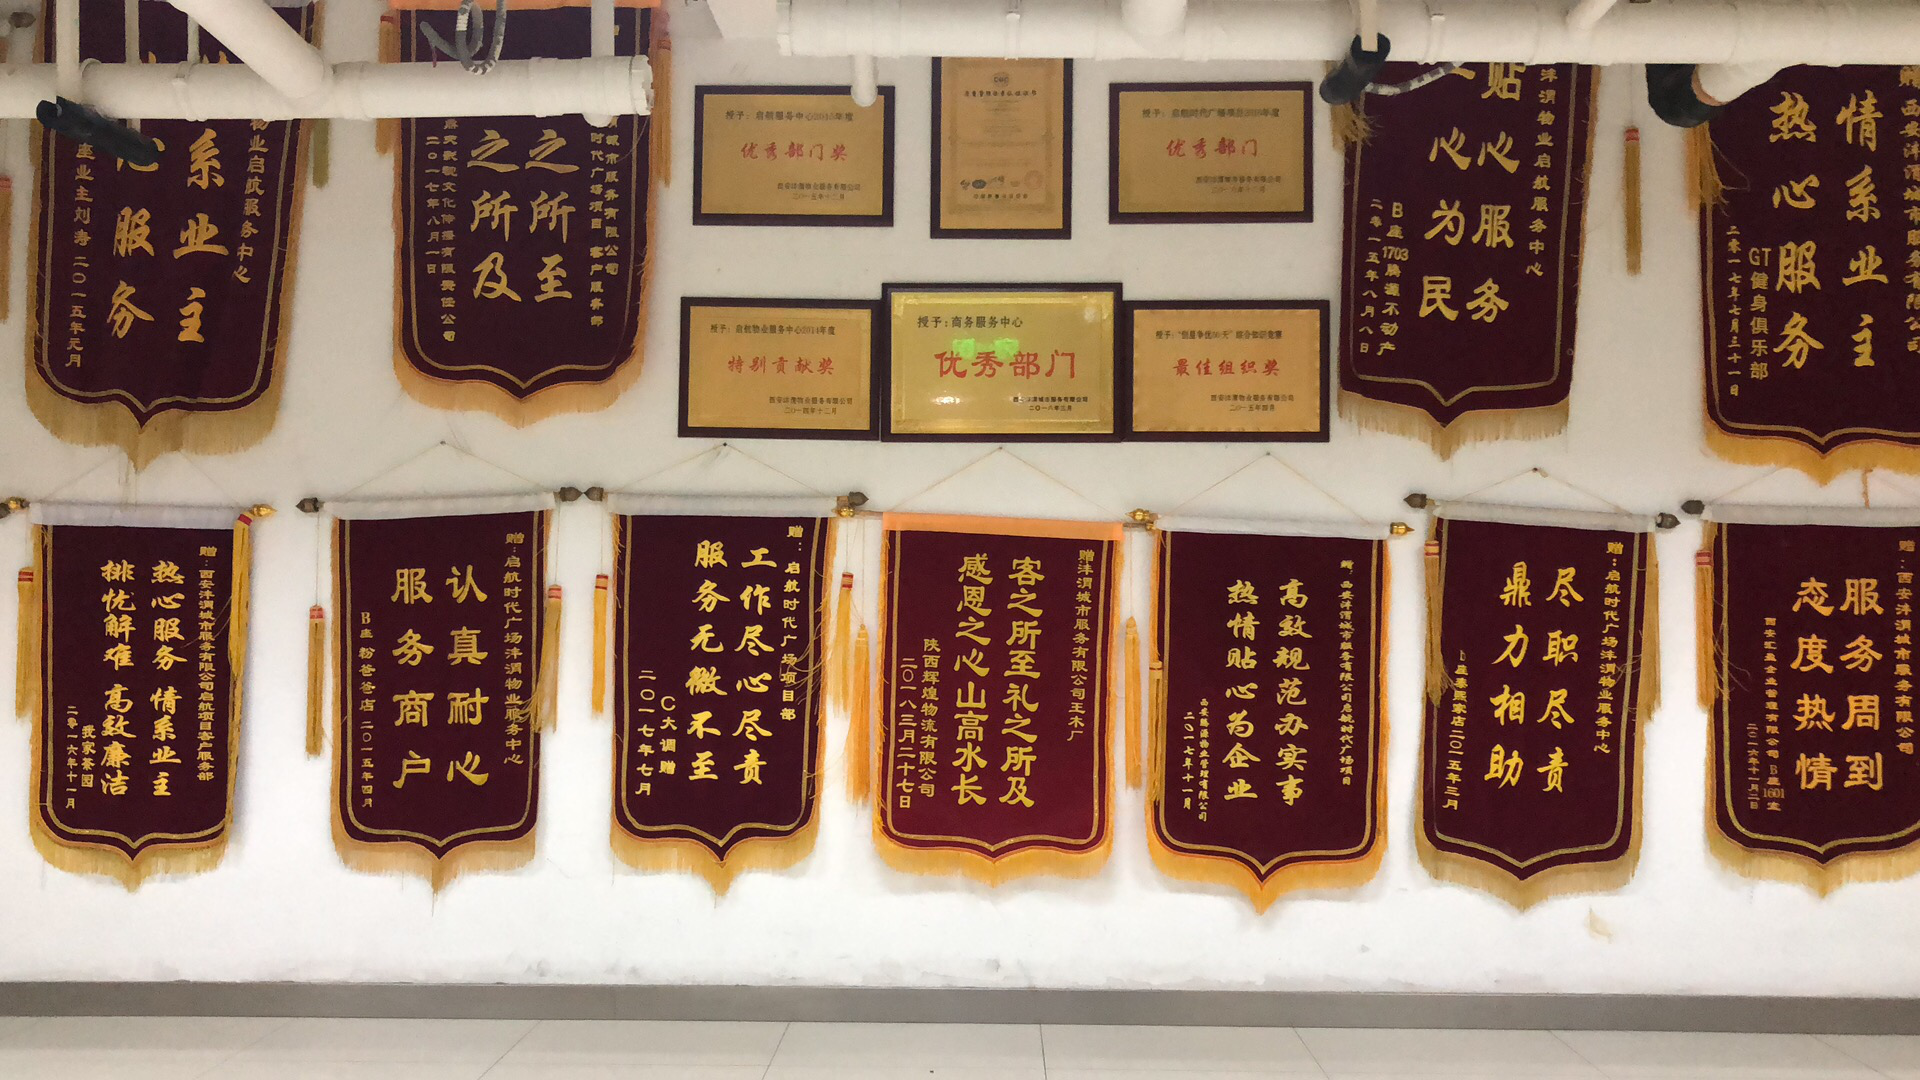 情系业主
服务
业主刘涛 二〇一五年元月
之所至
之所及
二〇一七年八月一日
授予：启航服务中心2015年度
优秀部门奖
西安沣渭物业服务有限公司
二〇一五年十二月
质量管理体系认证证书
优秀部门
贴心服务
心为民
沣渭物业启航服务中心
B座1703腾瀛不动产
二零一五年八月八日
情系业主
热心服务
GT健身俱乐部
二零一七年七月三十一日
授予：启航物业服务中心2014年度
特别贡献奖
西安沣渭物业服务有限公司
二〇一四年十二月
授予：商务服务中心
优秀部门
西安沣渭城市服务有限公司
二〇一八年三月
最佳组织奖
西安沣渭物业服务有限公司
二〇一五年四月
赠：西安沣渭城市服务有限公司启航项目客户服务部
热心服务 情系业主
排忧解难 高效廉洁
我家茶园
二零一六年十一月
赠：启航时代广场沣渭物业服务中心
认真耐心
服务商户
B座粉爸爸店 二〇一五年四月
赠：启航时代广场项目部
工作尽心尽责
服务无微不至
C大调赠
二〇一七年七月
赠沣渭城市服务有限公司王木厂
客之所至礼之所及
感恩之心山高水长
陕西辉煌物流有限公司
二〇一八三月二十七日
赠：西安沣渭城市服务有限公司启航时代广场项目
高效规范办实事
热情贴心为企业
二〇一七年十一月
赠：启航时代广场沣渭物业服务中心
尽职尽责
鼎力相助
二〇一五年三月
赠：西安沣渭城市服务有限公司
服务周到
态度热情
西安汇盈企业管理有限公司 B座1601室
二〇一六年十一月二日